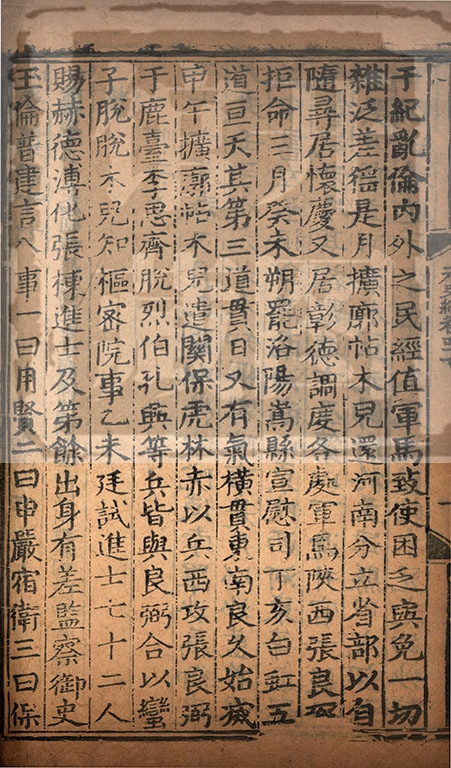 于紀亂倫内外之民經值軍馬致使困乏與免一切
雜泛差徭是月擴廓帖木兒還河南分立省部以自
隨尋居懷慶又居彰德調度各處軍馬陝西張良弼
拒命三月癸未朔罷洛陽嵩縣宣慰司丁亥白虹五
道亘天其第三道貫日又有氣橫貫東南良久始滅
甲午擴廓帖木兒遣關保虎林赤以兵西攻張良弼
于鹿臺李思齊脫烈伯孔興等兵皆與良弼合以蠻
子脫脫木兒知樞密院事乙未廷試進士七十二人
賜赫德溥化張棟進士及第餘出身有差監察御史
玉倫普建言八事一曰用賢二曰申嚴宿衛三曰保